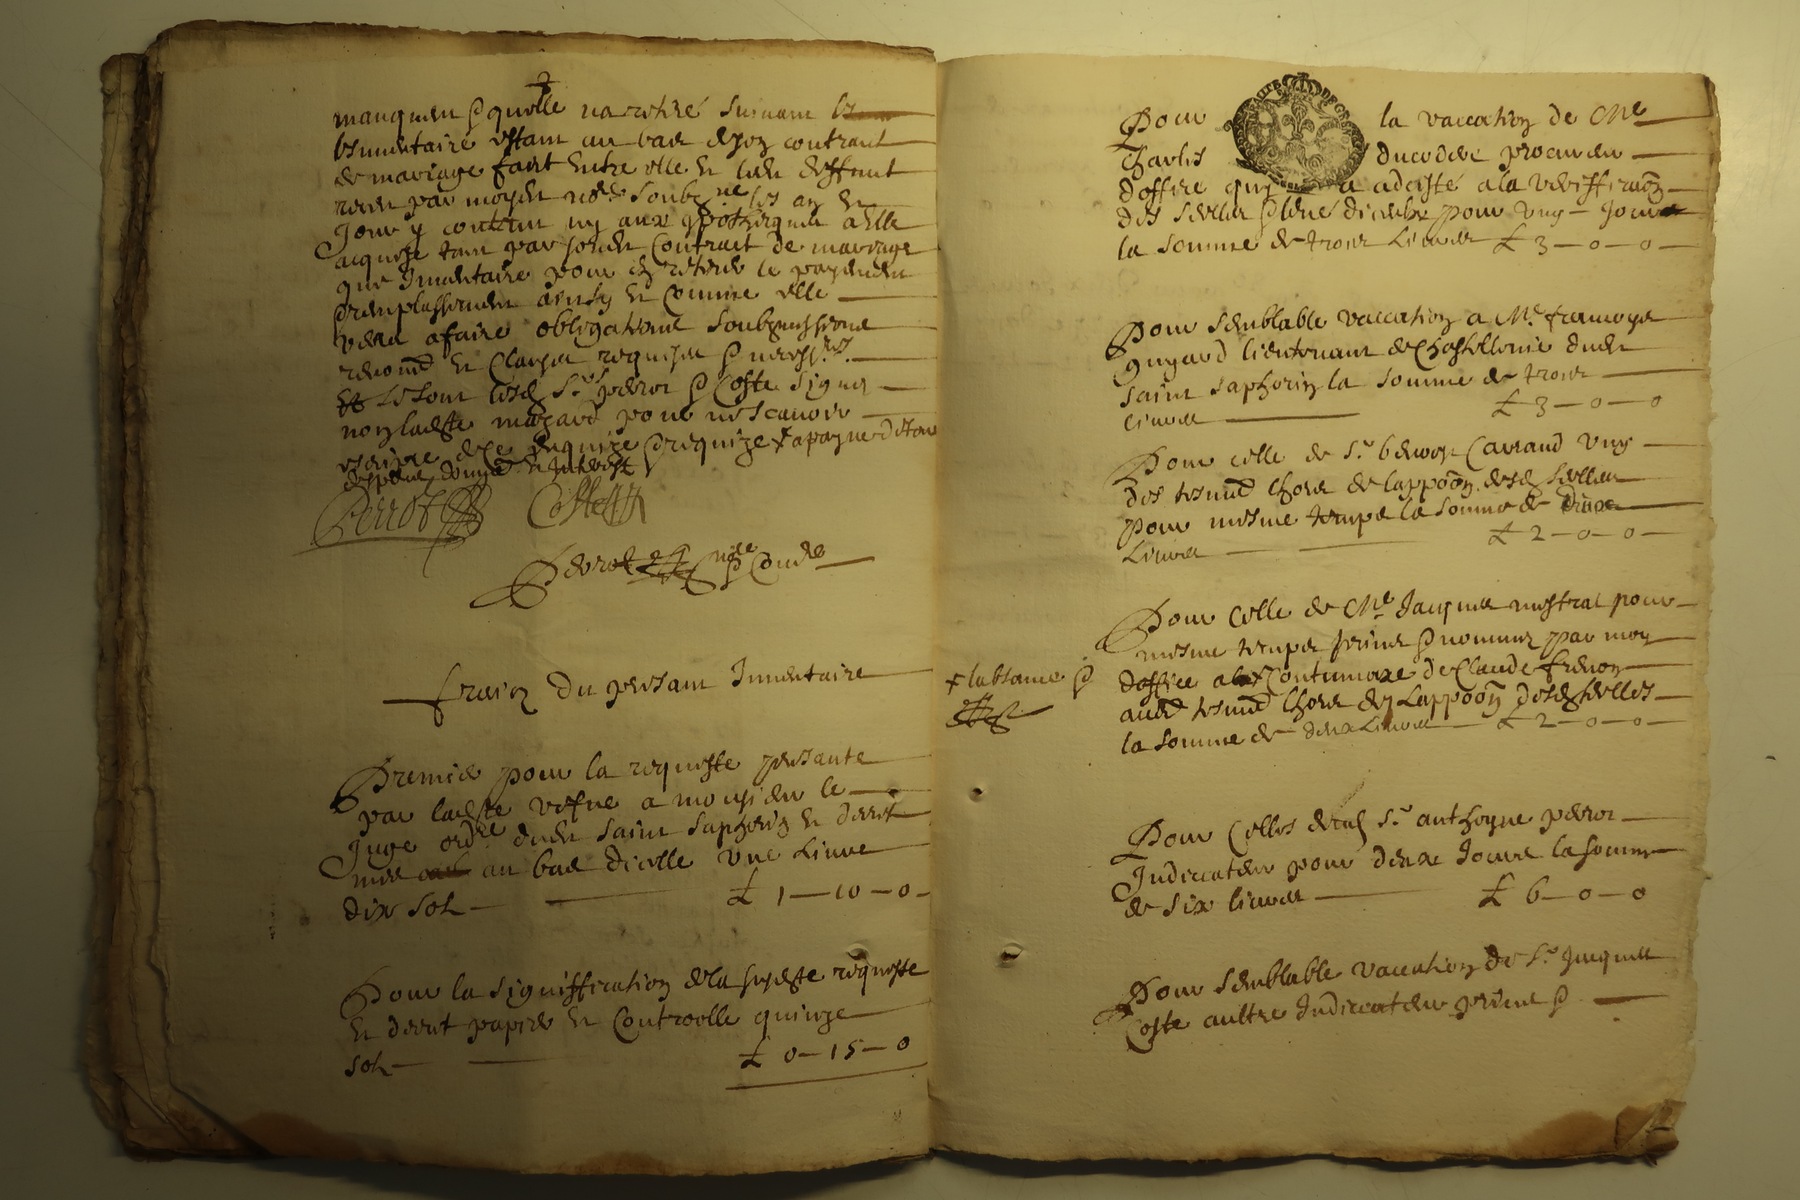 manquer & quelle na retiré suivant
Inventaire estant au bas de son contraut
de mariage fait entre elle et led deffunt
receu par moyer no.re soubz.ne les an et
Jour y contenu ny aux ypothecques a elle
acquise tant par sondit Contrait de mariage
que Inventaire pour en retirer le payement
& remplassement ainsy et Comme elle
verra afaire obligations soubzmissions
renond et Clauses requises & necess.res
Et se sont lesd S.rs perrot & Coste signes
non ladte mazard pour ne scavoir
escripre de ce enquize & requize
Perrot Coste
Perrot n.re & Com.re
fraiz du presant Inventaire
Premier pour la requeste presante
par ladte vefve a monsieur le
Juge ord.re dudit saint saphorin et decret
mis au bas dicelle une Livre
dix solz £ 1-10-0
Pour la signiffication de la susdte requeste
et decret papier et Controolle quinze
solz £ 0-15-0
Pour la vaccation de M.e
Charles ducoder procureur
doffice quy a adcisté a la veriffication
des scelles & levé diceulx pour ung Jour
la somme de trois Livres £ 3-0-0
Pour semblable vaccation a M.e francoys
Guyard lieutenant de Chastellenie dudit
saint saphorin la somme de trois
livres £ 3-0-0
Pour celle de S.r benoist Carrand ung
des tesmd lhors de lappoon desd scelles
pour mesme temps la somme de deux
Livres £ 2-0-0
Pour Celle de M.e Jacques mistral pour
mesme temps prins & nommé par moy
+ labsance &
doffice a + Contumaxe de Claude frenon
autre tesmd lhors de Lappoon desd scelles
la somme de deux Livres £ 2-0-0
Pour Celles dud S.r anthoyne perrot
Indiccateur pour deux Jours la somme
de six livres £ 6-0-0
Pour semblable vaccation de S.r Jacques
Coste aultre Indiccateur prins &